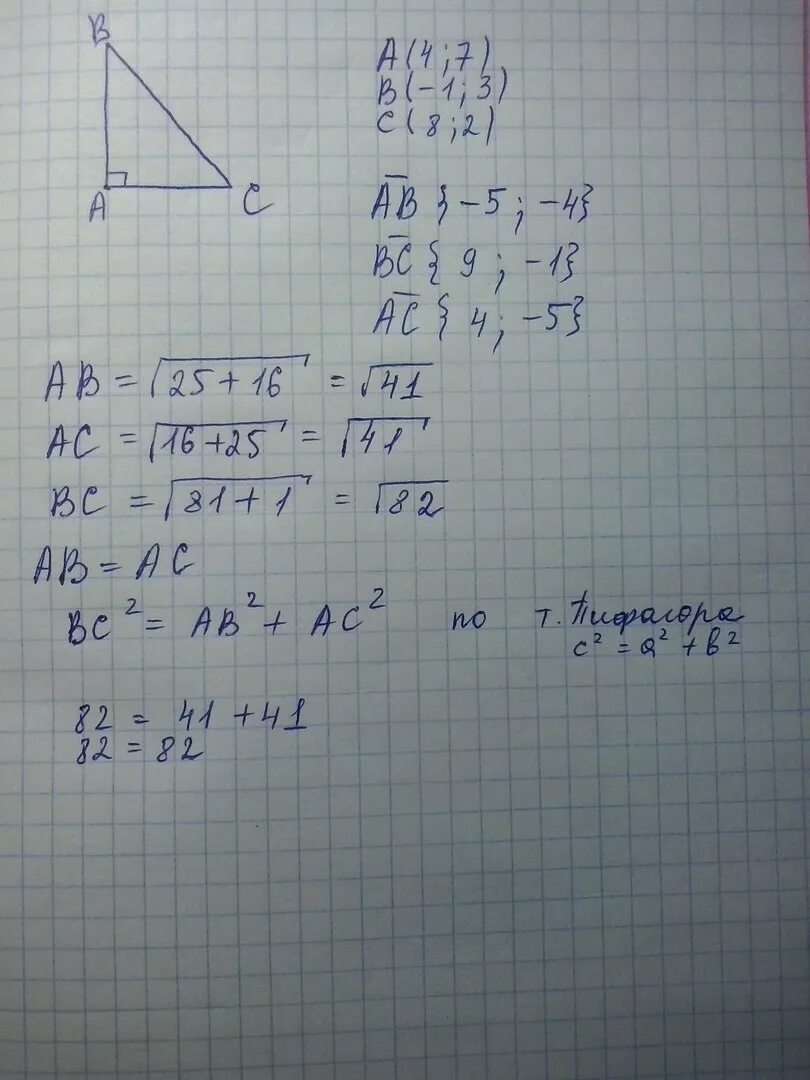 B
A
C
A(4;7)
B(-1;3)
C(8;2)
A̅B̅ {-5; -4}
B̅C̅ {9; -1}
A̅C̅ {4; -5}
AB = √25+16 = √41
AC = √16+25 = √41
BC = √81+1 = √82
AB = AC
BC² = AB² + AC² по т. Пифагора
c² = a² + b²
82 = 41 + 41
82 = 82